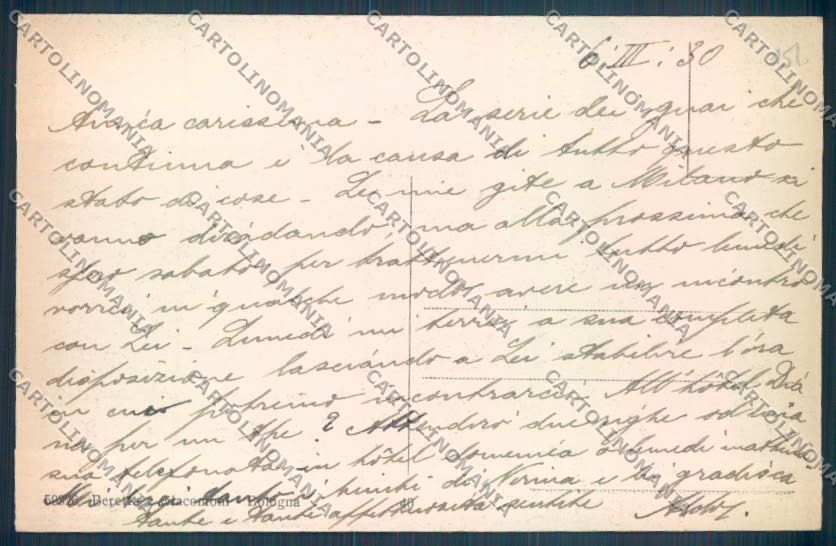 6 III : 30
151
Amica carissima - La serie dei guai che
continua è la causa di tutto questo
stato di cose - Le mie gite a Milano si
vanno diradando ma alla prossima che
spero sabato per trattenermi tutto lunedì
vorrei in qualche modo avere un incontro
con Lei - Lunedì mi terrei a sua completa
disposizione lasciando a Lei stabilire l'ora
in cui potremo incontrarci All'hôtel
na per un the? Attenderò due righe od una
sua telefonata in hôtel domenica o lunedì mattina
di Nerina e Lei gradisca
tante e tante affettuosità sentite
59926 Beretta e Giacomoni - Bologna
CARTOLINOMANIA